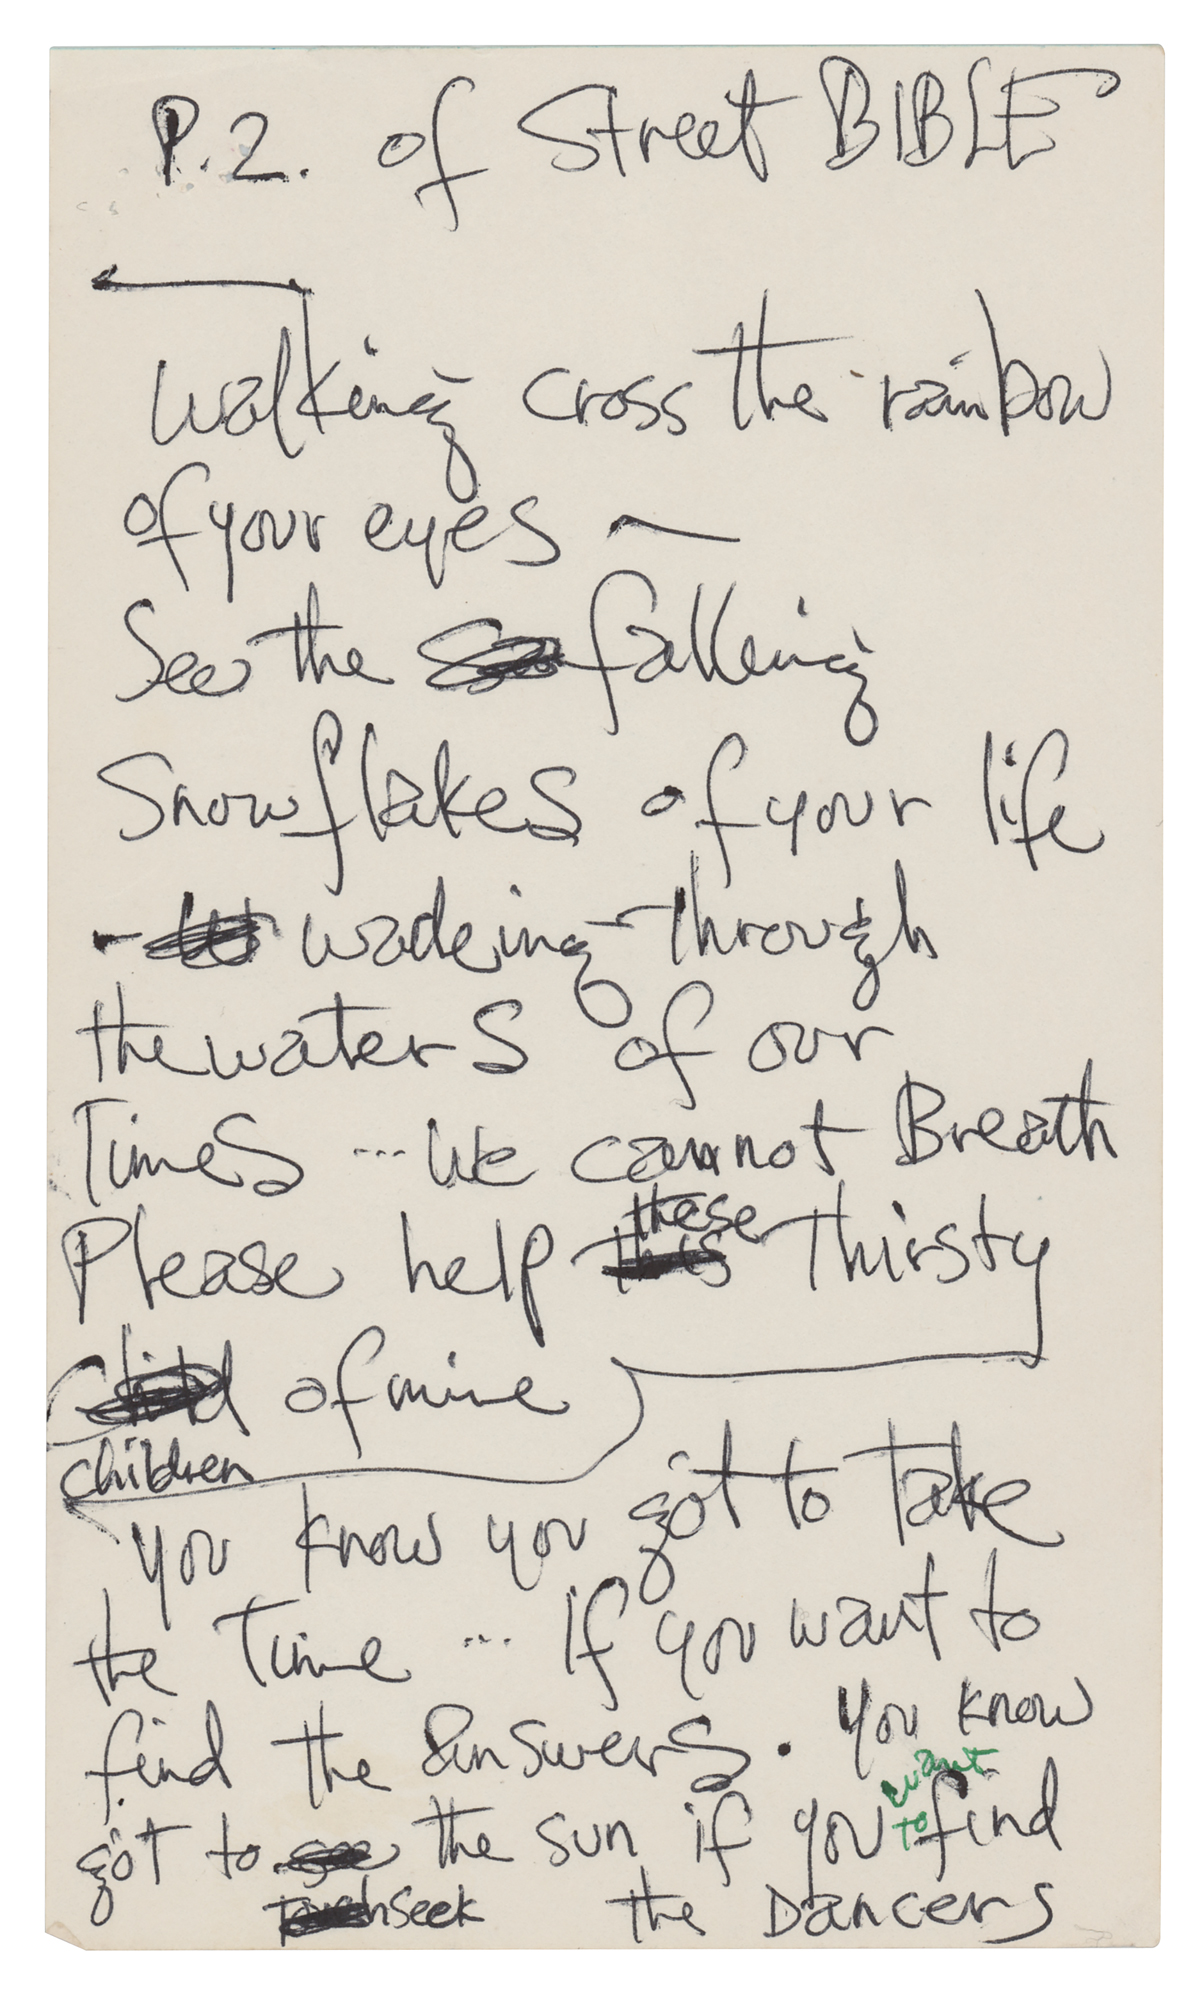 P.2. of Street BIBLE
Walking cross the rainbow
of your eyes —
See the falling
Snowflakes of your life
- wadeing through
the waters of our
Times ... We cannot Breath
these
Please help this Thirsty
child of mine
children
you know you got to Take
the Time ... If you want to
find the Answers. You know
want
to
got to see the sun if you find
touch seek the Dancers